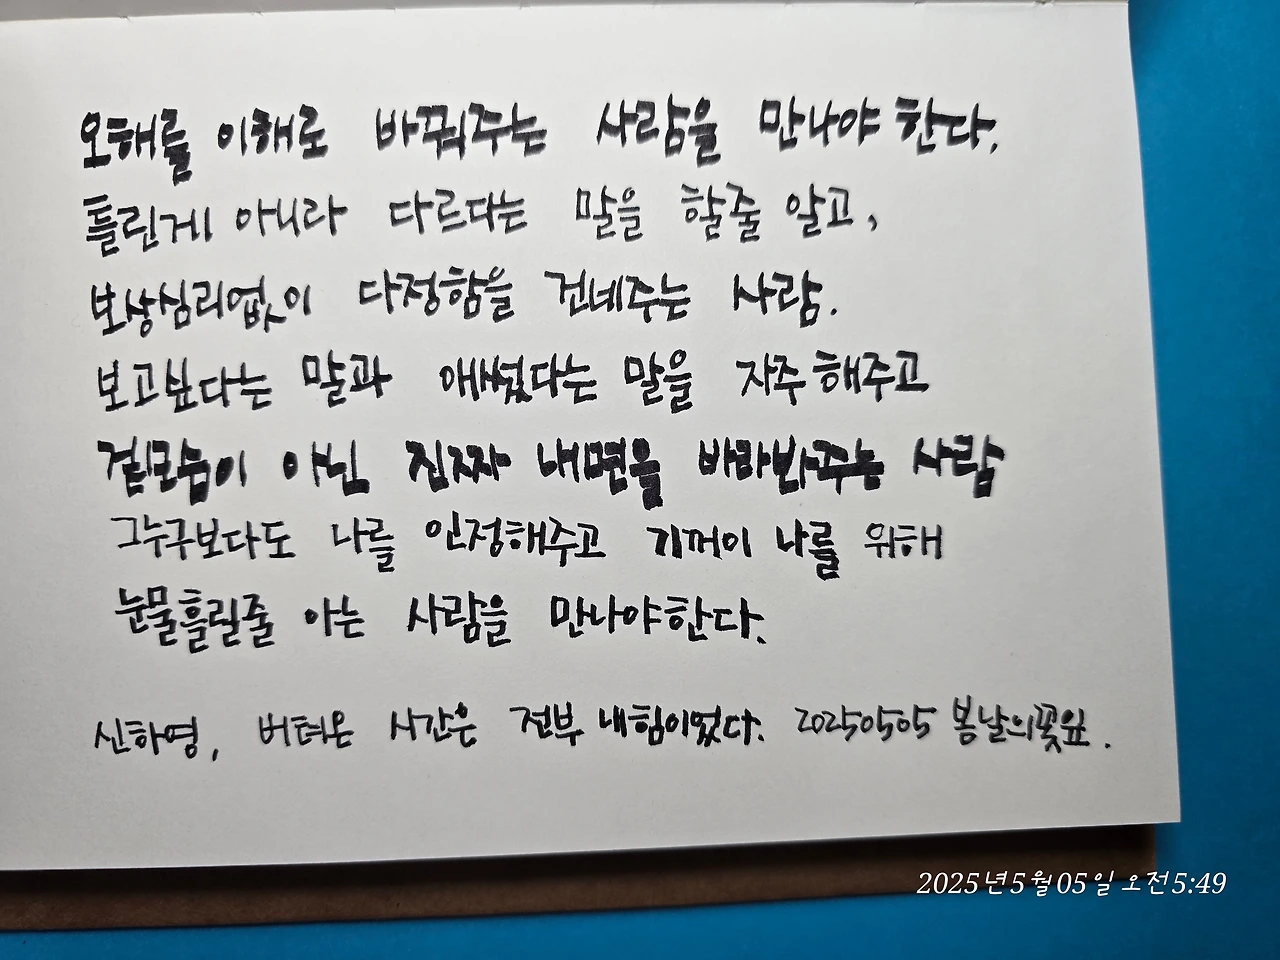 오해를 이해로 바꿔주는 사람을 만나야 한다.
틀린게 아니라 다르다는 말을 할줄 알고,
보상심리없이 다정함을 건네주는 사람.
보고싶다는 말과 애썼다는 말을 자주 해주고
겉모습이 아닌 진짜 내면을 바라봐주는 사람
그누구보다도 나를 인정해주고 기꺼이 나를 위해
눈물흘릴줄 아는 사람을 만나야한다.
신하영, 버텨온 시간은 전부 내힘이었다. 20250505 봄날의꽃잎.
2025년5월05일 오전5:49